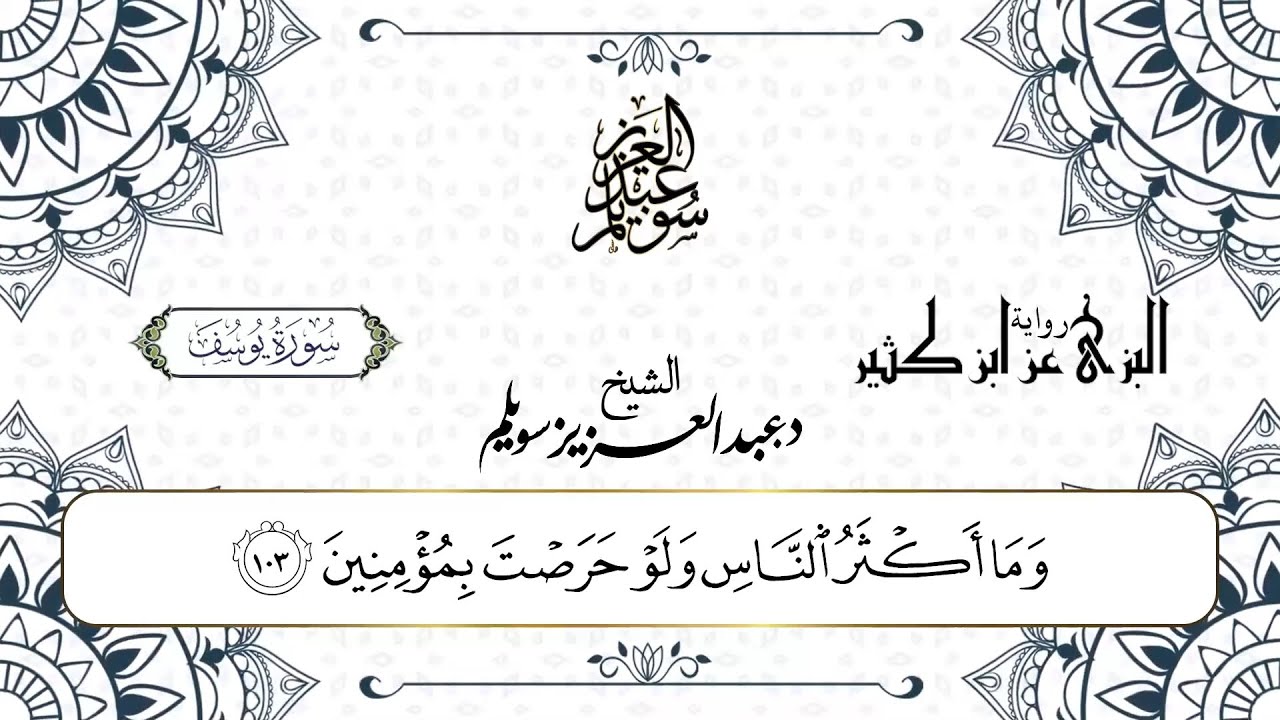 عبدالعزيز سويلم
رواية
البزي عن ابن كثير
سُورَةُ يُوسُفَ
الشيخ
د عبدالعزيز سويلم
وَمَا أَكۡثَرُ ٱلنَّاسِ وَلَوۡ حَرَصۡتَ بِمُؤۡمِنِينَ ١٠٣